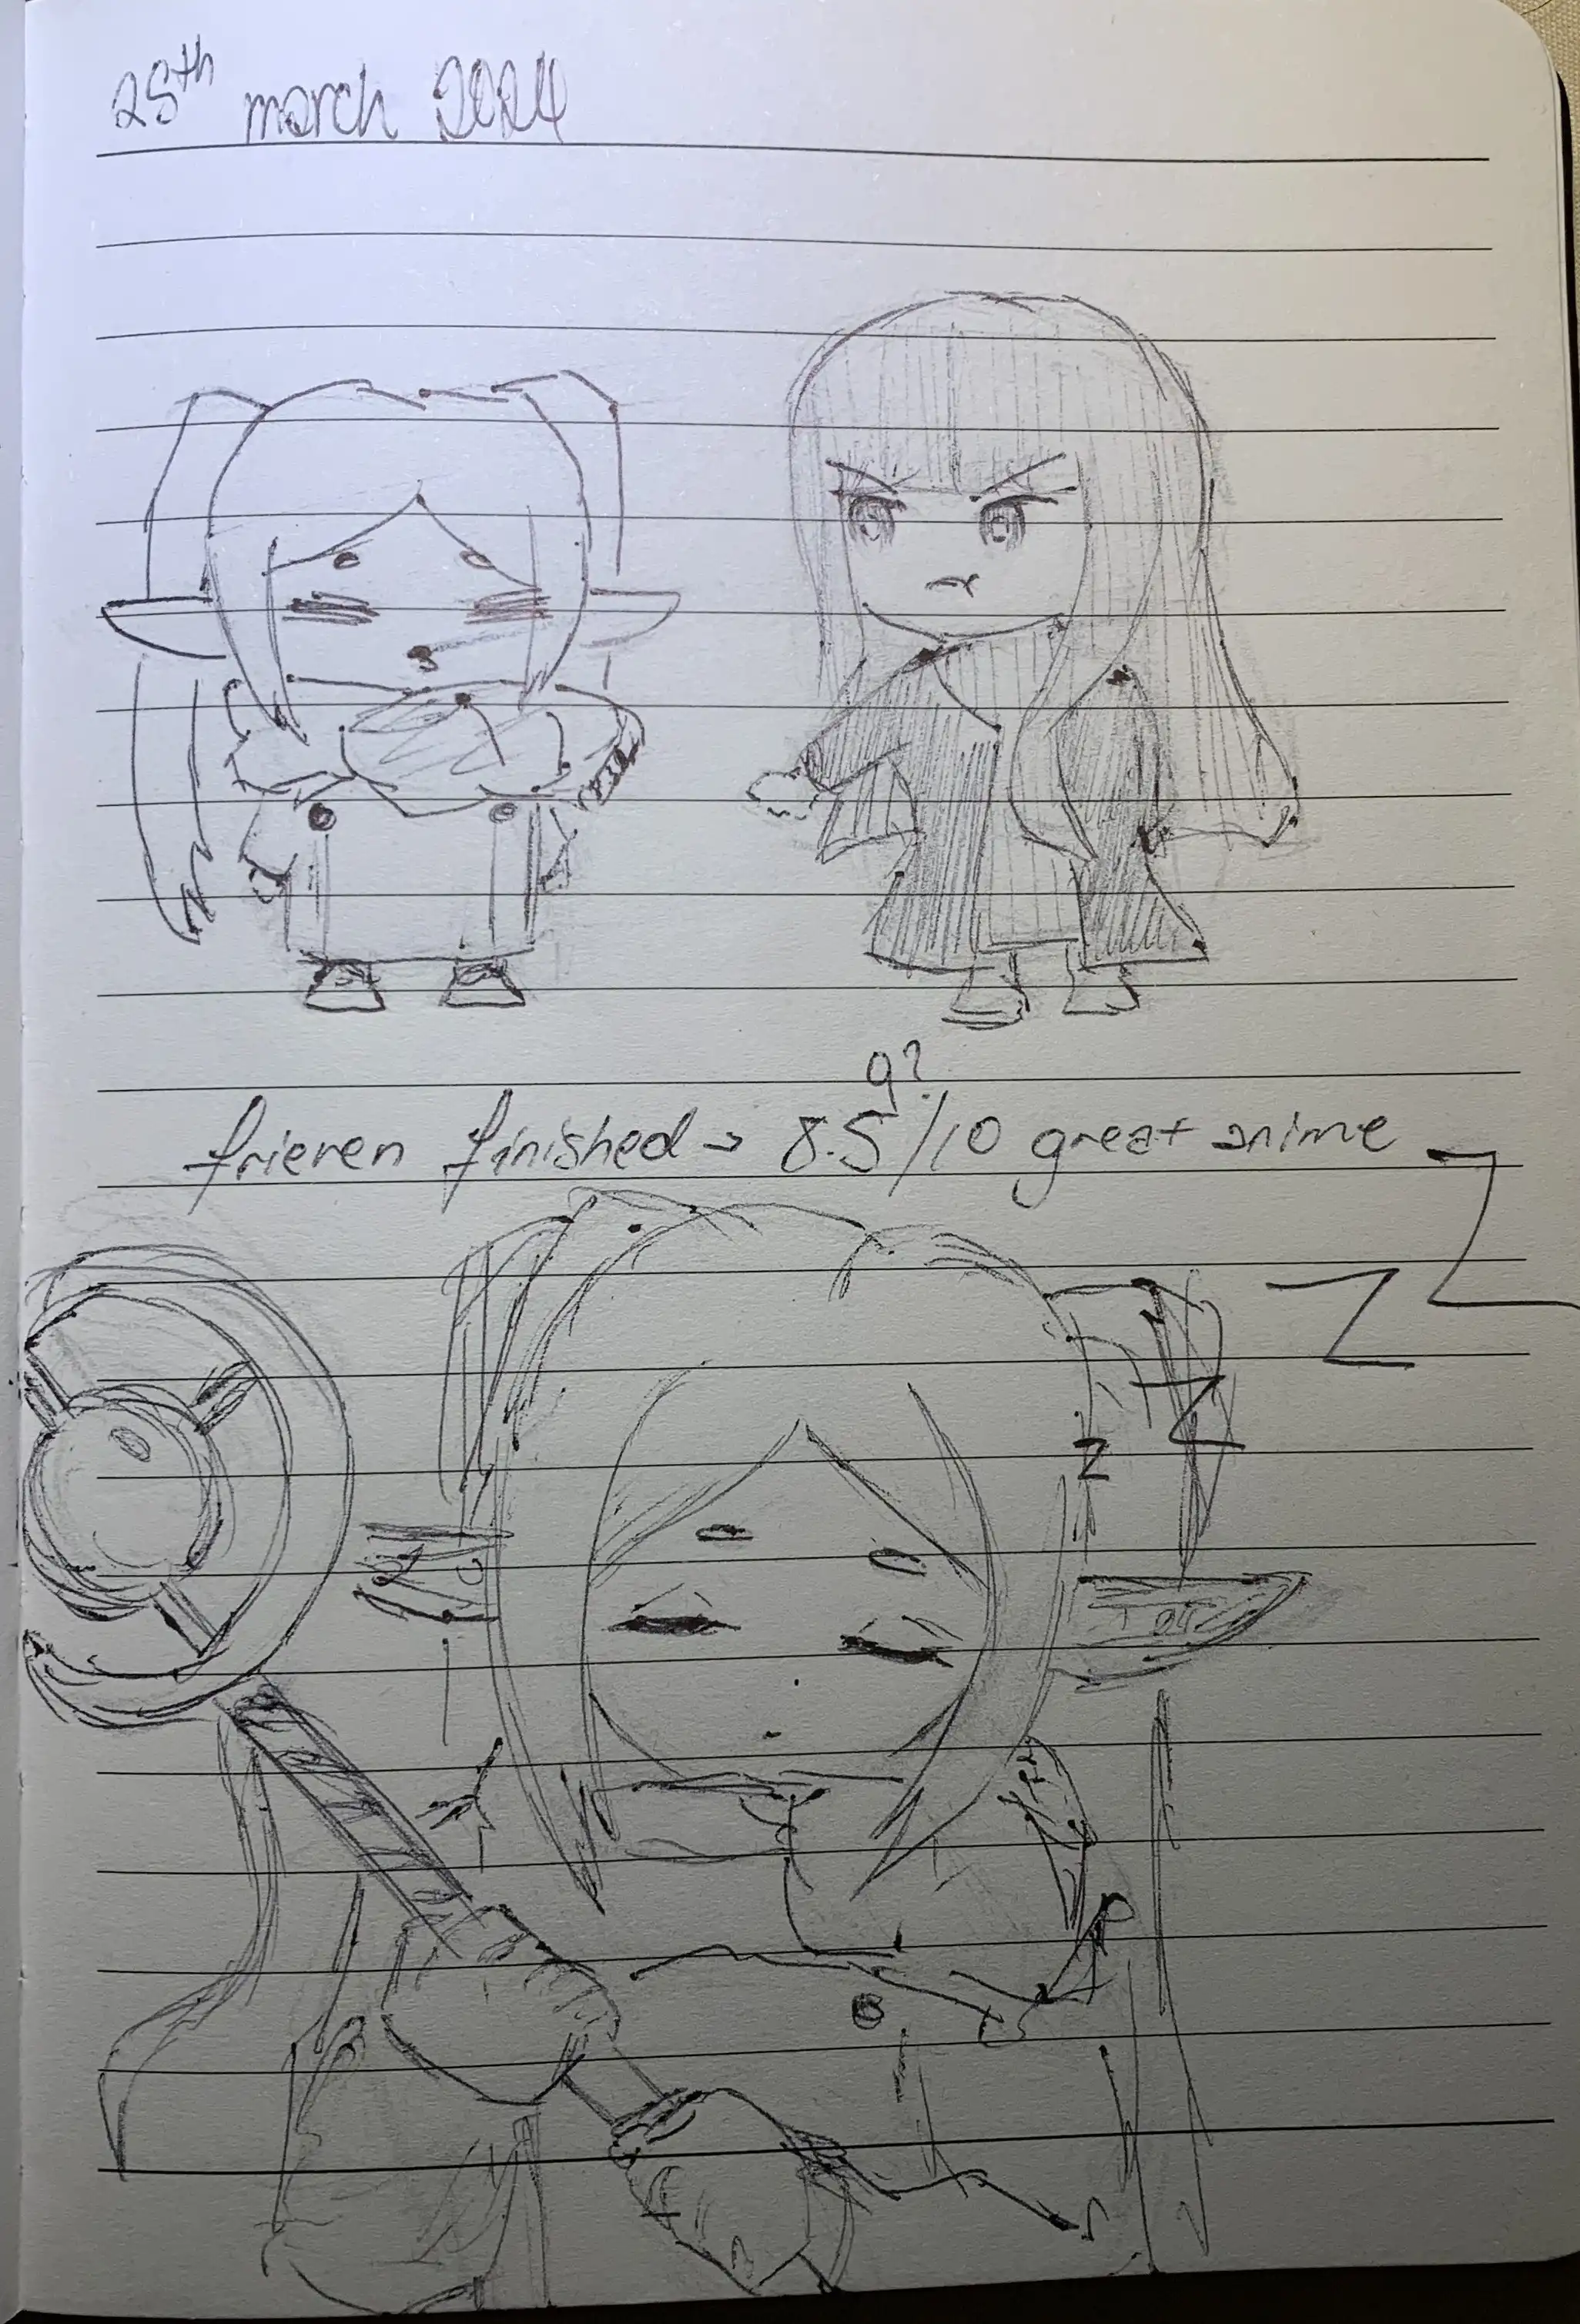 25th march 2024
9?
frieren finished → 8.5/10 great anime
Z
Z
Z
Z